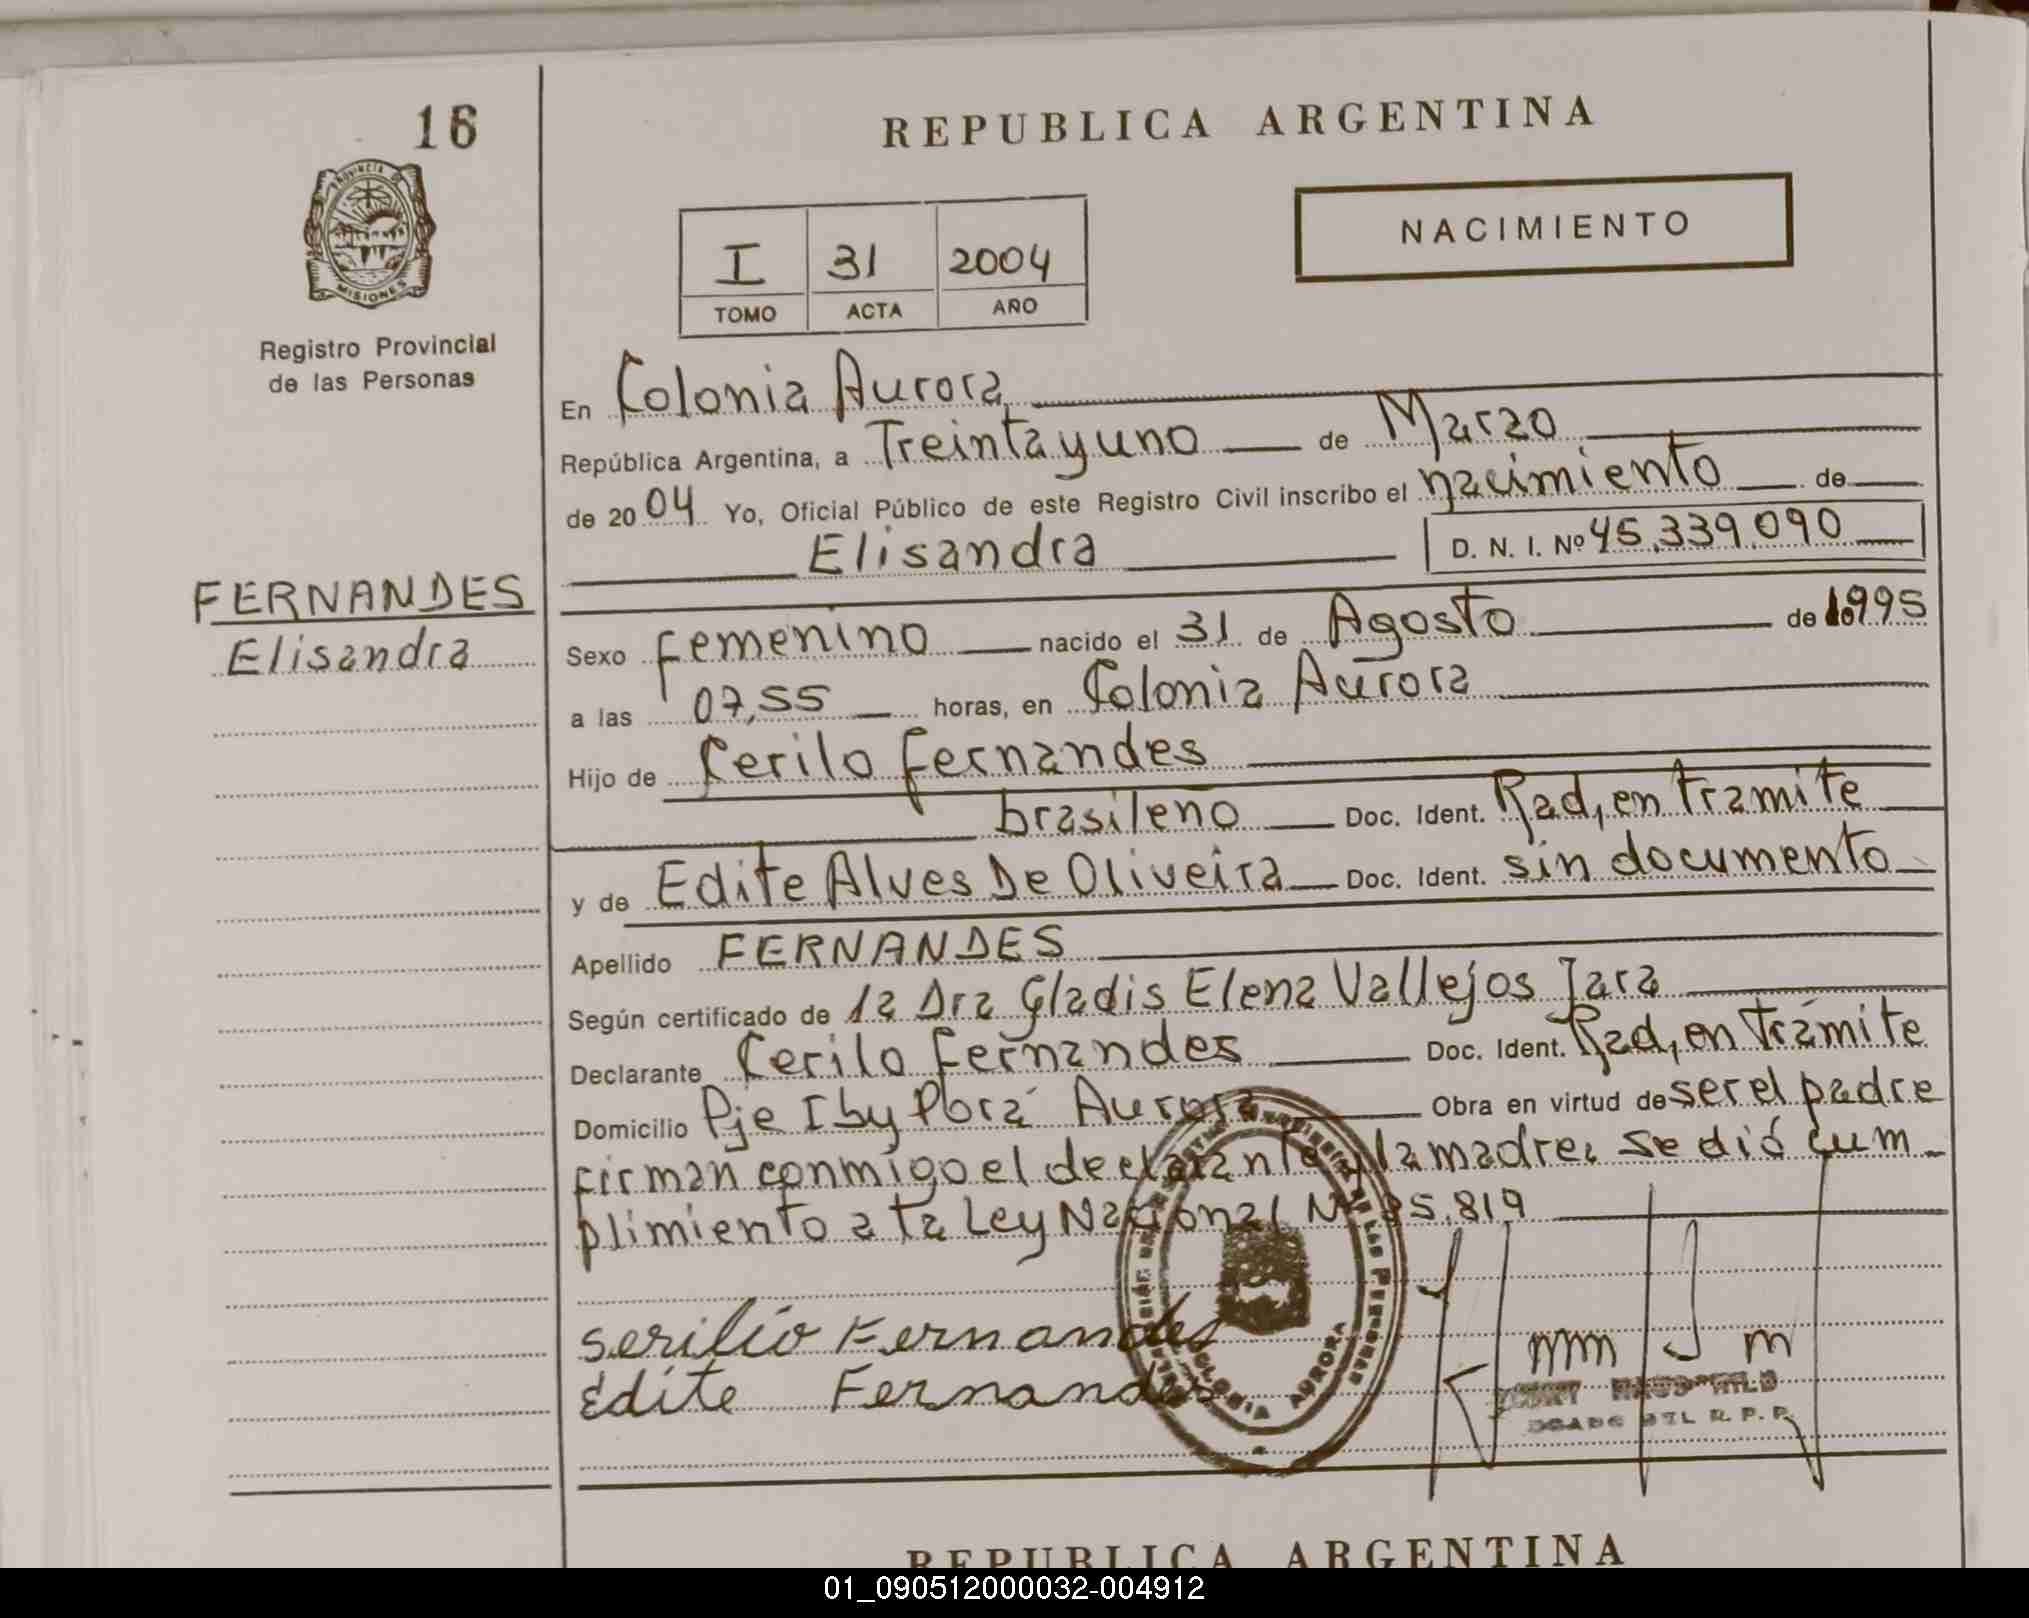 16
REPUBLICA ARGENTINA
PROVINCIA DE
MISIONES
Registro Provincial
de las Personas
I 31 2004
TOMO ACTA AÑO
NACIMIENTO
En Colonia Aurora
República Argentina, a Treinta y uno de Marzo
de 2004 Yo, Oficial Público de este Registro Civil inscribo el nacimiento de
Elisandra D. N. I. Nº 45.339.090
FERNANDES
Elisandra
Sexo Femenino nacido el 31 de Agosto de 1995
a las 07,55 horas, en Colonia Aurora
Hijo de Cerilo Fernandes
brasileño Doc. Ident. Rad, en tramite
y de Edite Alves De Oliveira Doc. Ident. sin documento
Apellido FERNANDES
Según certificado de la Dra Gladis Elena Vallejos Jara
Declarante Cerilo Fernandes Doc. Ident. Rad, en trámite
Domicilio Pje Iby Porá Aurora Obra en virtud de ser el padre
firman conmigo el declarante y la madre. se dió cum-
plimiento a la Ley Nacional Nº 25.819
serilio Fernandes
Edite Fernandes
COLONIA AURORA
R. P. P.
REPUBLICA ARGENTINA
01_090512000032-004912